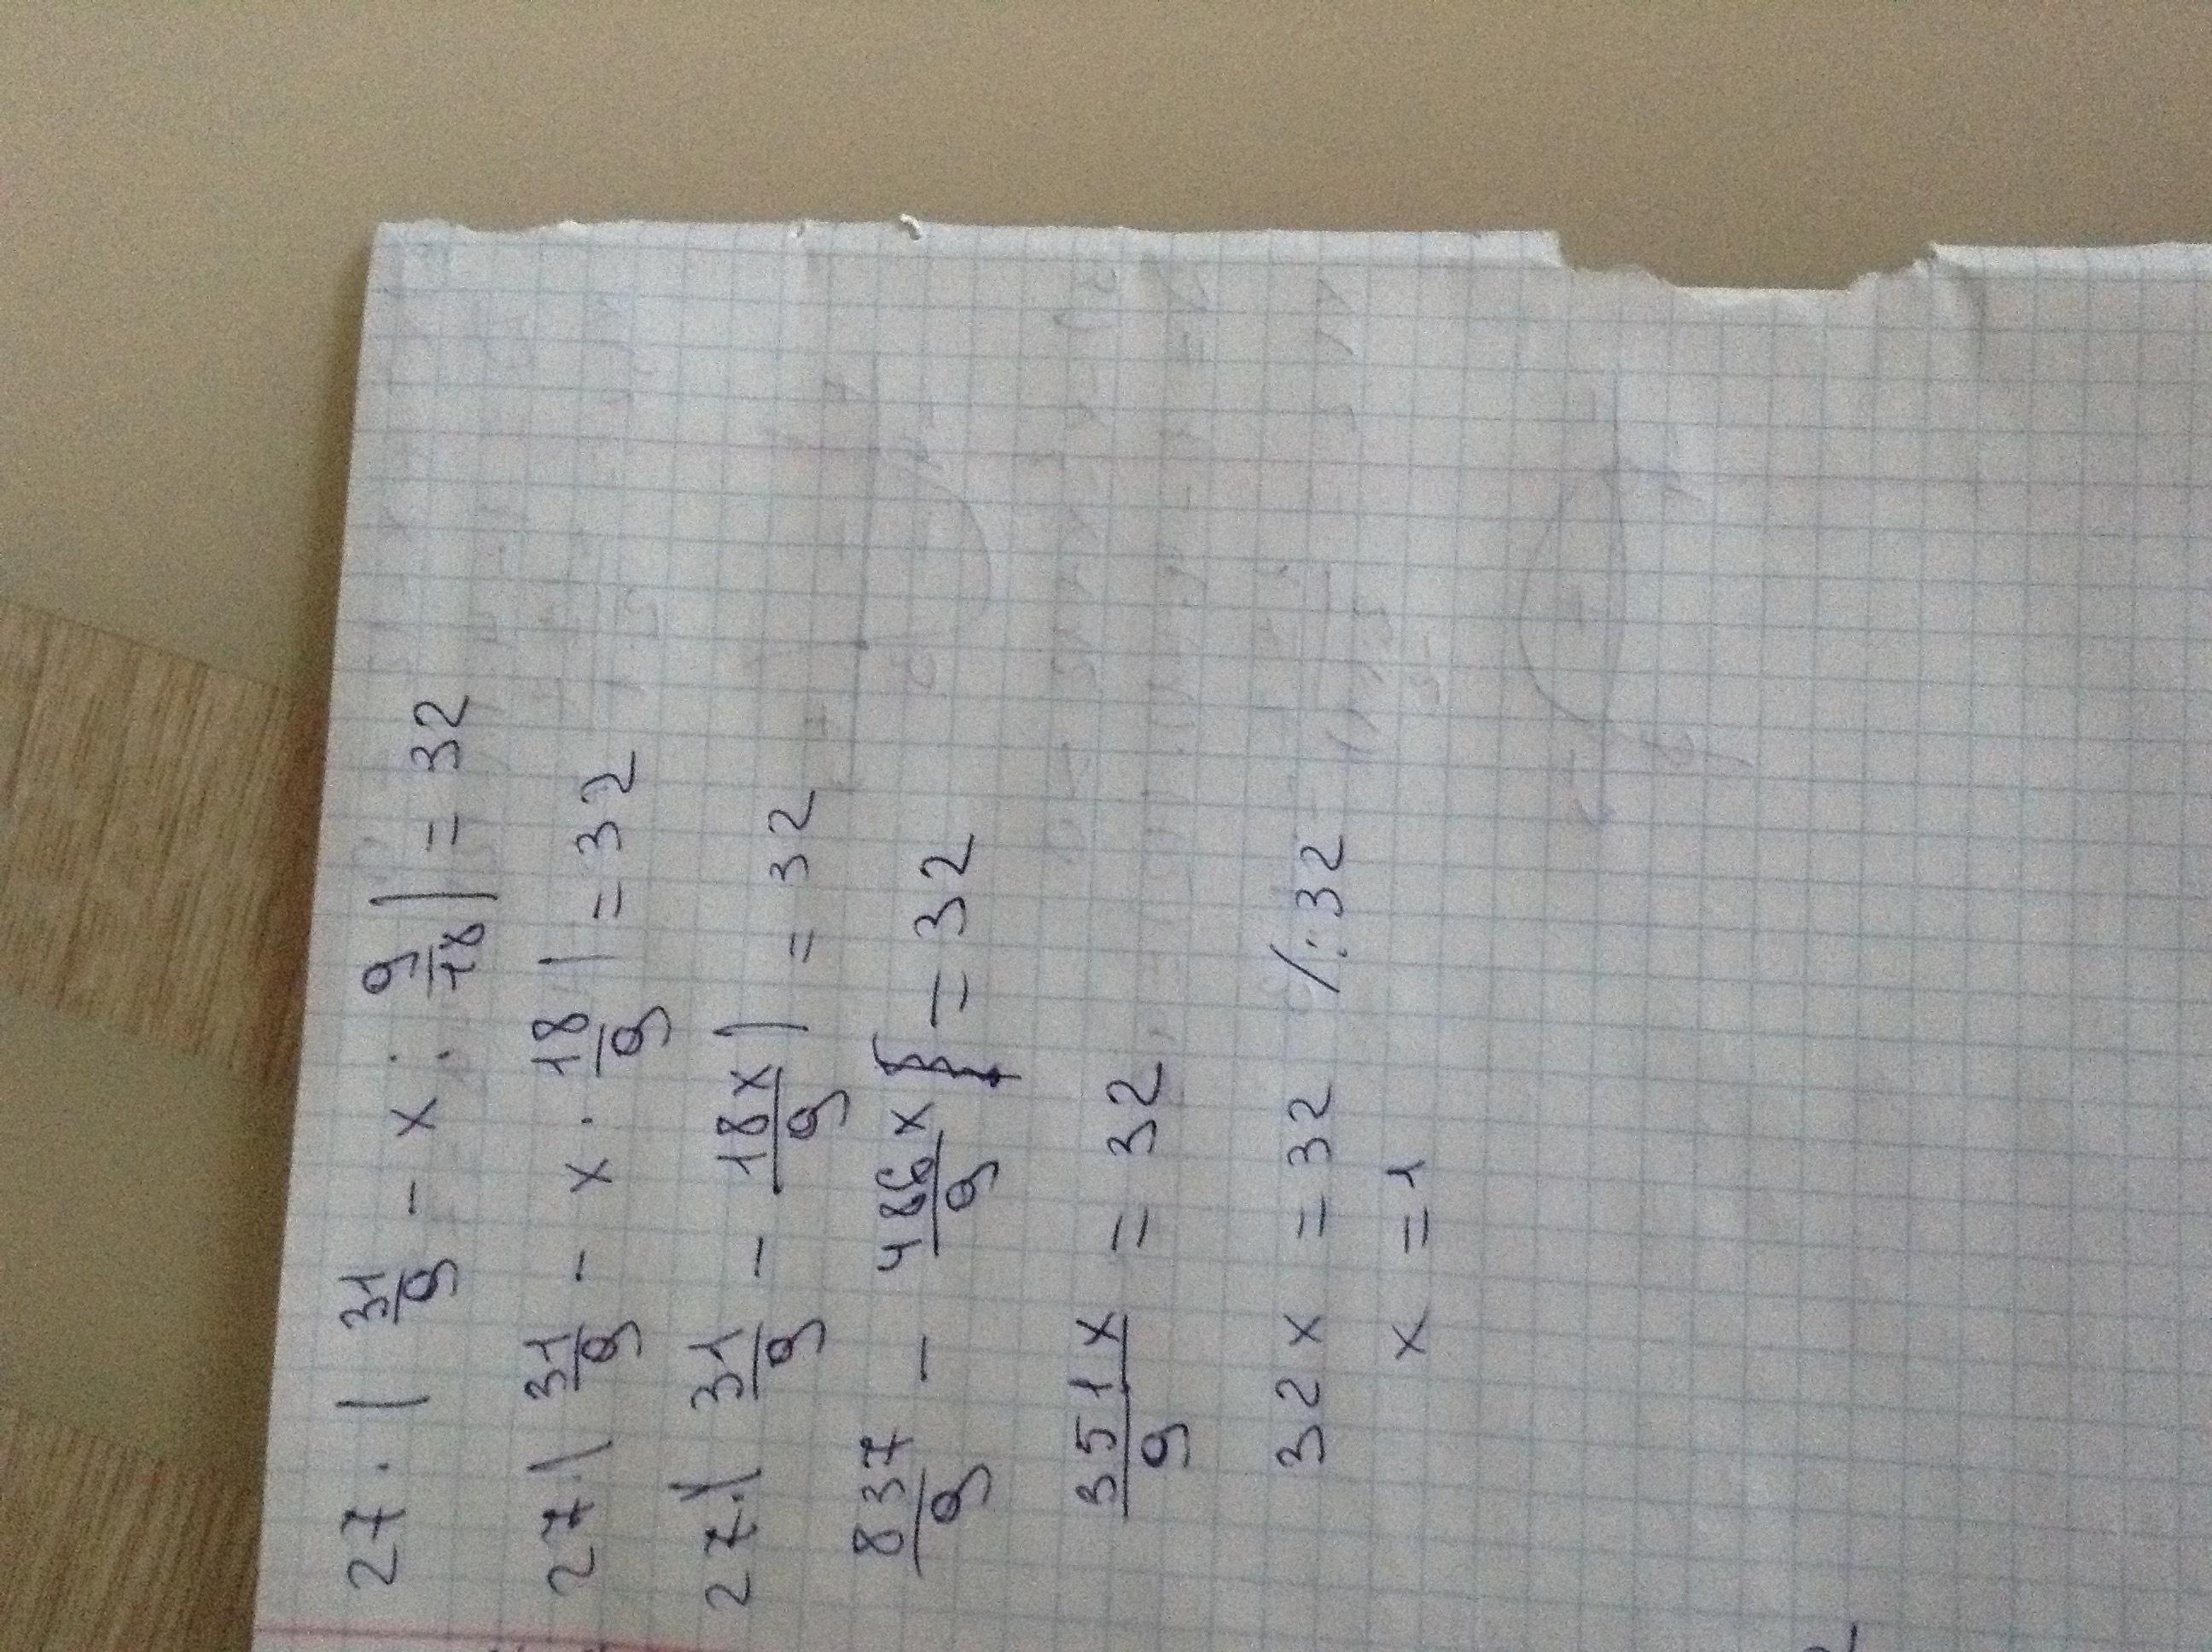 27 · ( 31/9 - x : 9/18 ) = 32
27 · ( 31/9 - x · 18/9 ) = 32
27 · ( 31/9 - 18x/9 ) = 32
837/9 - 486x/9 = 32
351x/9 = 32
32x = 32 /:32
x = 1